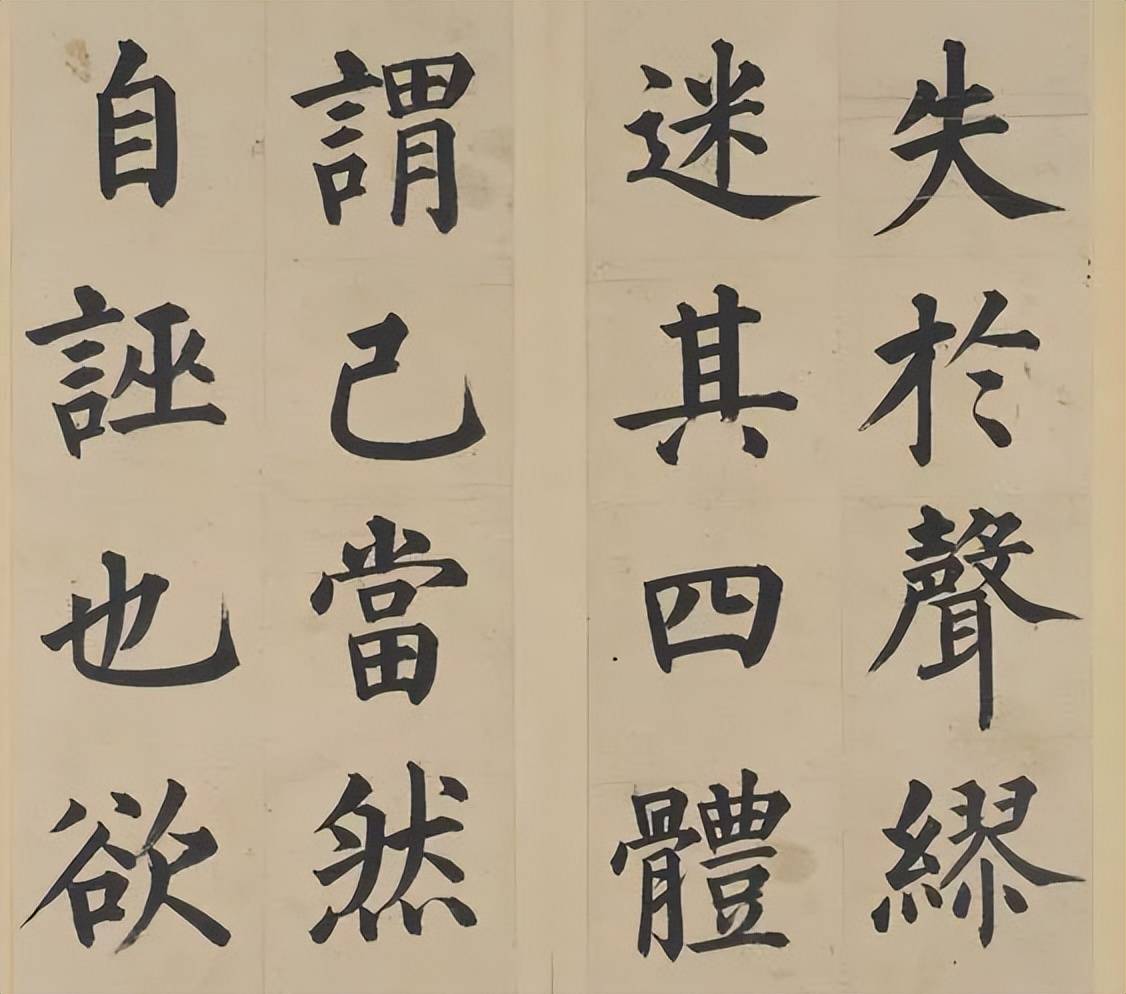 失於聲繆
迷其四體
謂己當然
自誣也欲